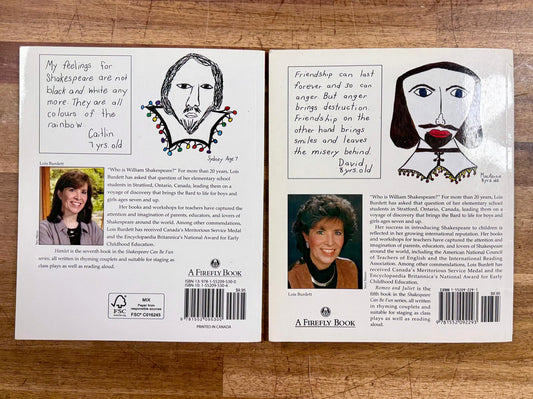 My feelings for
Shakespeare are not
black and white any
more. They are all
colours of the
rainbow.
Caitlin
7 yrs. old
Sydney Age 7
Lois Burdett
"Who is William Shakespeare?" For more than 20 years, Lois
Burdett has asked that question of her elementary school
students in Stratford, Ontario, Canada, leading them on a
voyage of discovery that brings the Bard to life for boys and
girls ages seven and up.
Her books and workshops for teachers have captured the
attention and imagination of parents, educators, and lovers of
Shakespeare around the world. Among other commendations, Lois
Burdett has received Canada's Meritorious Service Medal
and the Encyclopaedia Britannica's National Award for Early
Childhood Education.
Hamlet is the seventh book in the Shakespeare Can Be Fun
series, all written in rhyming couplets and suitable for staging as
class plays as well as reading aloud.
A FIREFLY BOOK
FSC
www.fsc.org
MIX
Paper from
responsible sources
FSC® C016245
ISBN-13: 978-1-55209-530-0
ISBN-10: 1-55209-530-6
$9.95
9 781552 095300
PRINTED IN CANADA
Friendship can last
forever and so can
anger. But anger
brings destruction.
Friendship on the
other hand brings
smiles and leaves
the misery behind.
David
8 yrs. old
Lois Burdett
"Who is William Shakespeare?" For more than 20 years, Lois
Burdett has asked that question of her elementary school
students in Stratford, Ontario, Canada, leading them on a
voyage of discovery that brings the Bard to life for boys and
girls ages seven and up.
Her success in introducing Shakespeare to children is
reflected in her growing international reputation. Her books
and workshops for teachers have captured the attention and
imagination of parents, educators, and lovers of Shakespeare
around the world, including the American National Council
of Teachers of English and the International Reading
Association. Among other commendations, Lois Burdett has
received Canada's Meritorious Service Medal and the
Encyclopaedia Britannica's National Award for Early
Childhood Education.
Romeo and Juliet is the
fifth book in the Shakespeare
Can Be Fun series, all written
in rhyming couplets and
suitable for staging as class
plays as well as reading
aloud.
A FIREFLY BOOK
ISBN 1-55209-229-3
$9.95
9 781552 092293